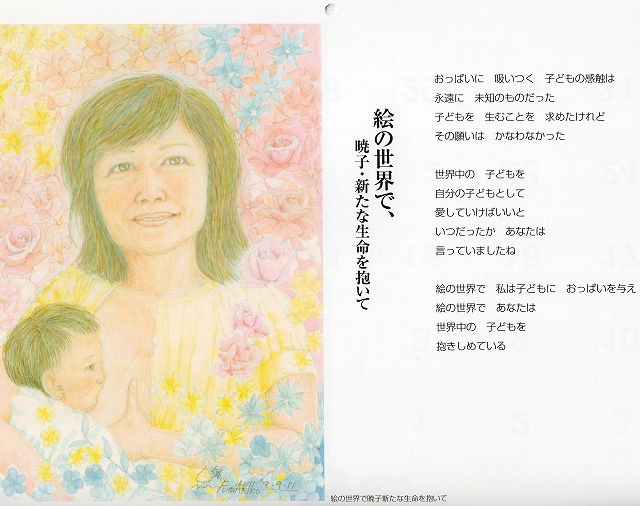 絵の世界で、
暁子・新たな生命を抱いて
おっぱいに　吸いつく　子どもの感触は
永遠に　未知のものだった
子どもを　生むことを　求めたけれど
その願いは　かなわなかった
世界中の　子どもを
自分の子どもとして
愛していけばいいと
いつだったか　あなたは
言っていましたね
絵の世界で　私は子どもに　おっぱいを与え
絵の世界で　あなたは
世界中の　子どもを
抱きしめている
絵の世界で暁子新たな生命を抱いて